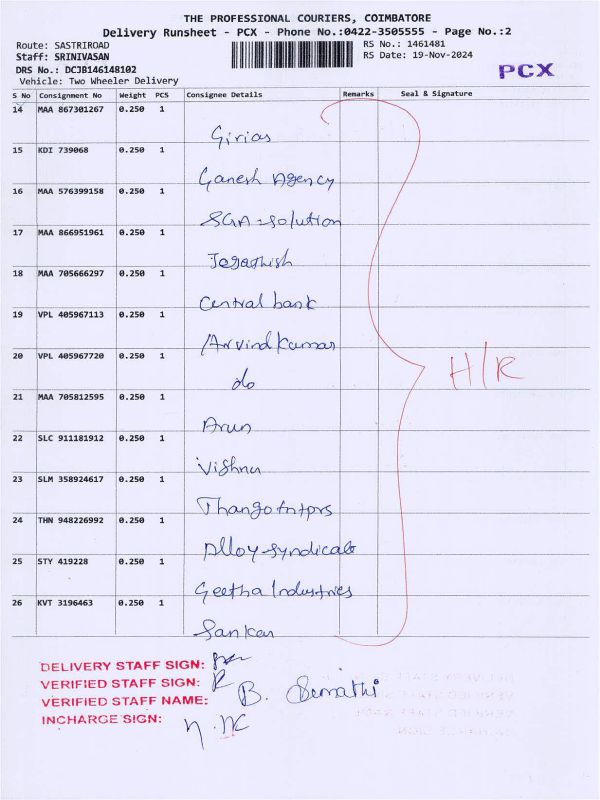 THE PROFESSIONAL COURIERS, COIMBATORE
Delivery Runsheet - PCX - Phone No.:0422-3505555 - Page No.:2
Route: SASTRIROAD
RS No.: 1461481
Staff: SRINIVASAN
RS Date: 19-Nov-2024
DRS No.: DCJB146148102
PCX
Vehicle: Two Wheeler Delivery
S No Consignment No Weight PCS Consignee Details Remarks Seal & Signature
14 MAA 867301267 0.250 1
Girias
15 KDI 739068 0.250 1
Ganesh Agency
16 MAA 576399158 0.250 1
SGA solution
17 MAA 866951961 0.250 1
Jegathish
18 MAA 705666297 0.250 1
Central bank
19 VPL 405967113 0.250 1
Arvind Kumar
20 VPL 405967720 0.250 1
do
H/R
21 MAA 705812595 0.250 1
Arun
22 SLC 911181912 0.250 1
Vishnu
23 SLM 358924617 0.250 1
Thangotntprs
24 THN 948226992 0.250 1
Alloy Syndicate
25 STY 419228 0.250 1
Geetha Industries
26 KVT 3196463 0.250 1
Sankar
DELIVERY STAFF SIGN:
VERIFIED STAFF SIGN:
VERIFIED STAFF NAME: B. Sumathi
INCHARGE SIGN: